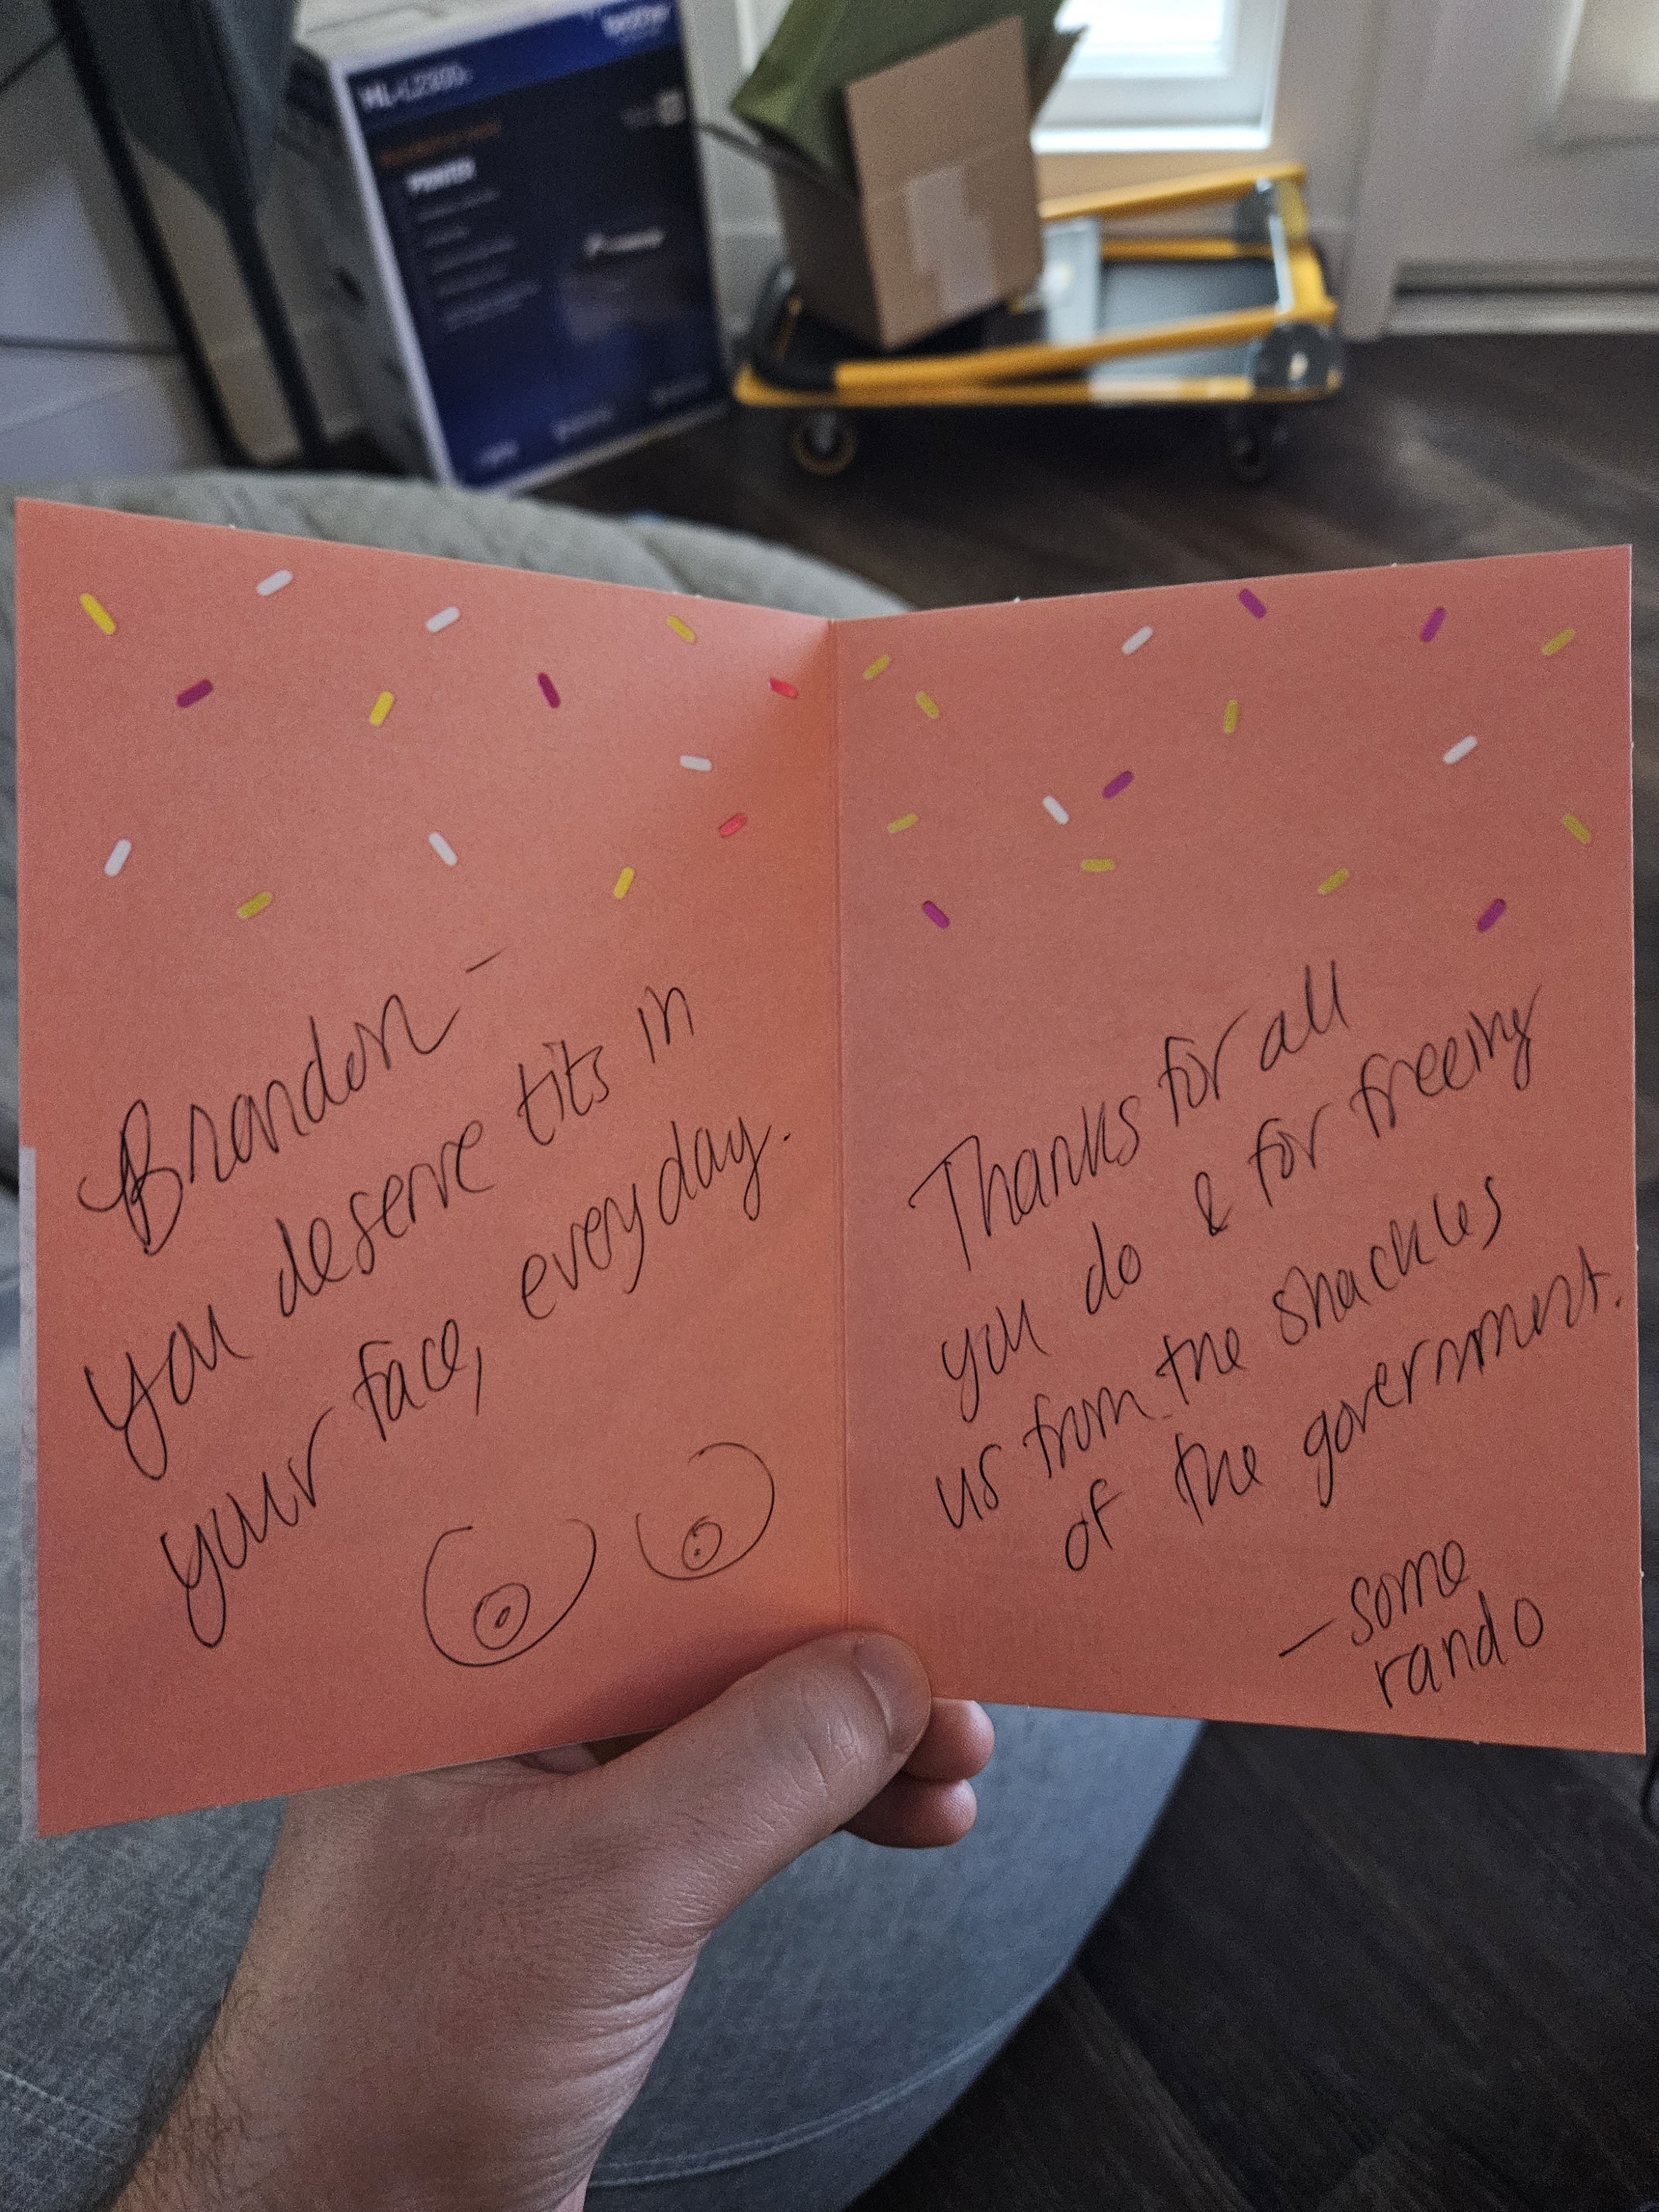 HL-L2300D
PRINTER
Brandon –
you deserve tits in
your face, everyday.
Thanks for all
you do & for freeing
us from the shackles
of the government.
– some
rando